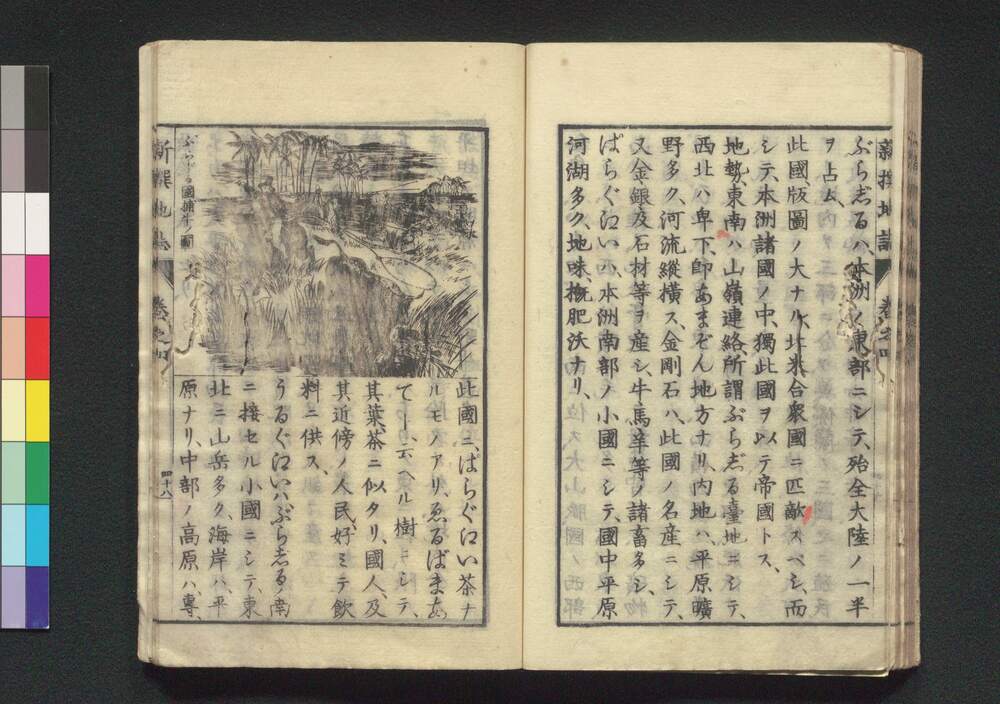 新撰地誌 卷之四
ぶらじるハ、本洲ノ東部ニシテ、殆全大陸ノ一半
ヲ占ム、
此國、版圖ノ大ナル、北米合衆國ニ匹敵スベシ、而
シテ、本洲諸國ノ中、獨此國ヲ以テ帝國トス、
地勢、東南ハ山嶺連絡、所謂ぶらじる臺地ニシテ、
西北ハ卑下、即あまぞん地方ナリ、内地ハ、平原曠
野多ク、河流縱横ス、金剛石ハ、此國ノ名産ニシテ、
又金銀及石材等ヲ産シ、牛馬羊等ノ諸畜多シ、
ぱらぐわいハ、本洲南部ノ小國ニシテ、國中平原
河湖多ク、地味、概肥沃ナリ、
ぶらじる國捕牛ノ圖
此國ニ、ぱらぐわい茶ナ
ルモノアリ、ゑるばまあ
てート云ヘル樹ニシテ、
其葉、茶ニ似タリ、國人、及
其近傍ノ人民、好ミテ飲
料ニ供ス、
うるぐわいハぶらじるノ南
ニ接セル小國ニシテ、東
北ニ山岳多ク、海岸ハ、平
原ナリ、中部ノ高原ハ、專、
新撰地誌 卷之四
四十八